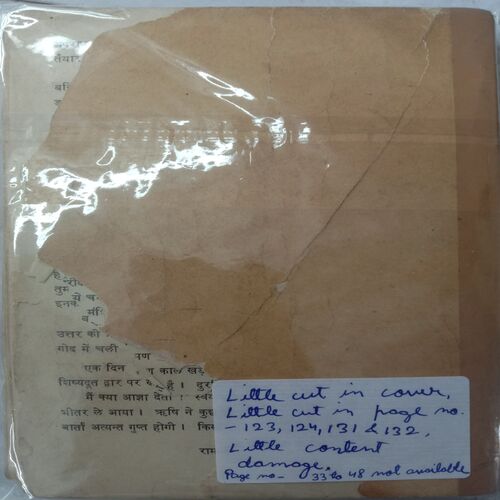 तैयार
तुम
इनके
उत्तर को
गोद में चली
पण
एक दिन
काल खड़
शिष्यदूत द्वार पर
है। दुर्वा
मैं क्या आज्ञा देता! स्वयं
भीतर ले आया। ऋषि ने कुछ
वार्ता अत्यन्त गुप्त होगी।
राम
Little cut in cover,
Little cut in page no.
- 123, 124, 131 & 132,
Little content
damage.
Page no- 33 to 48 not available